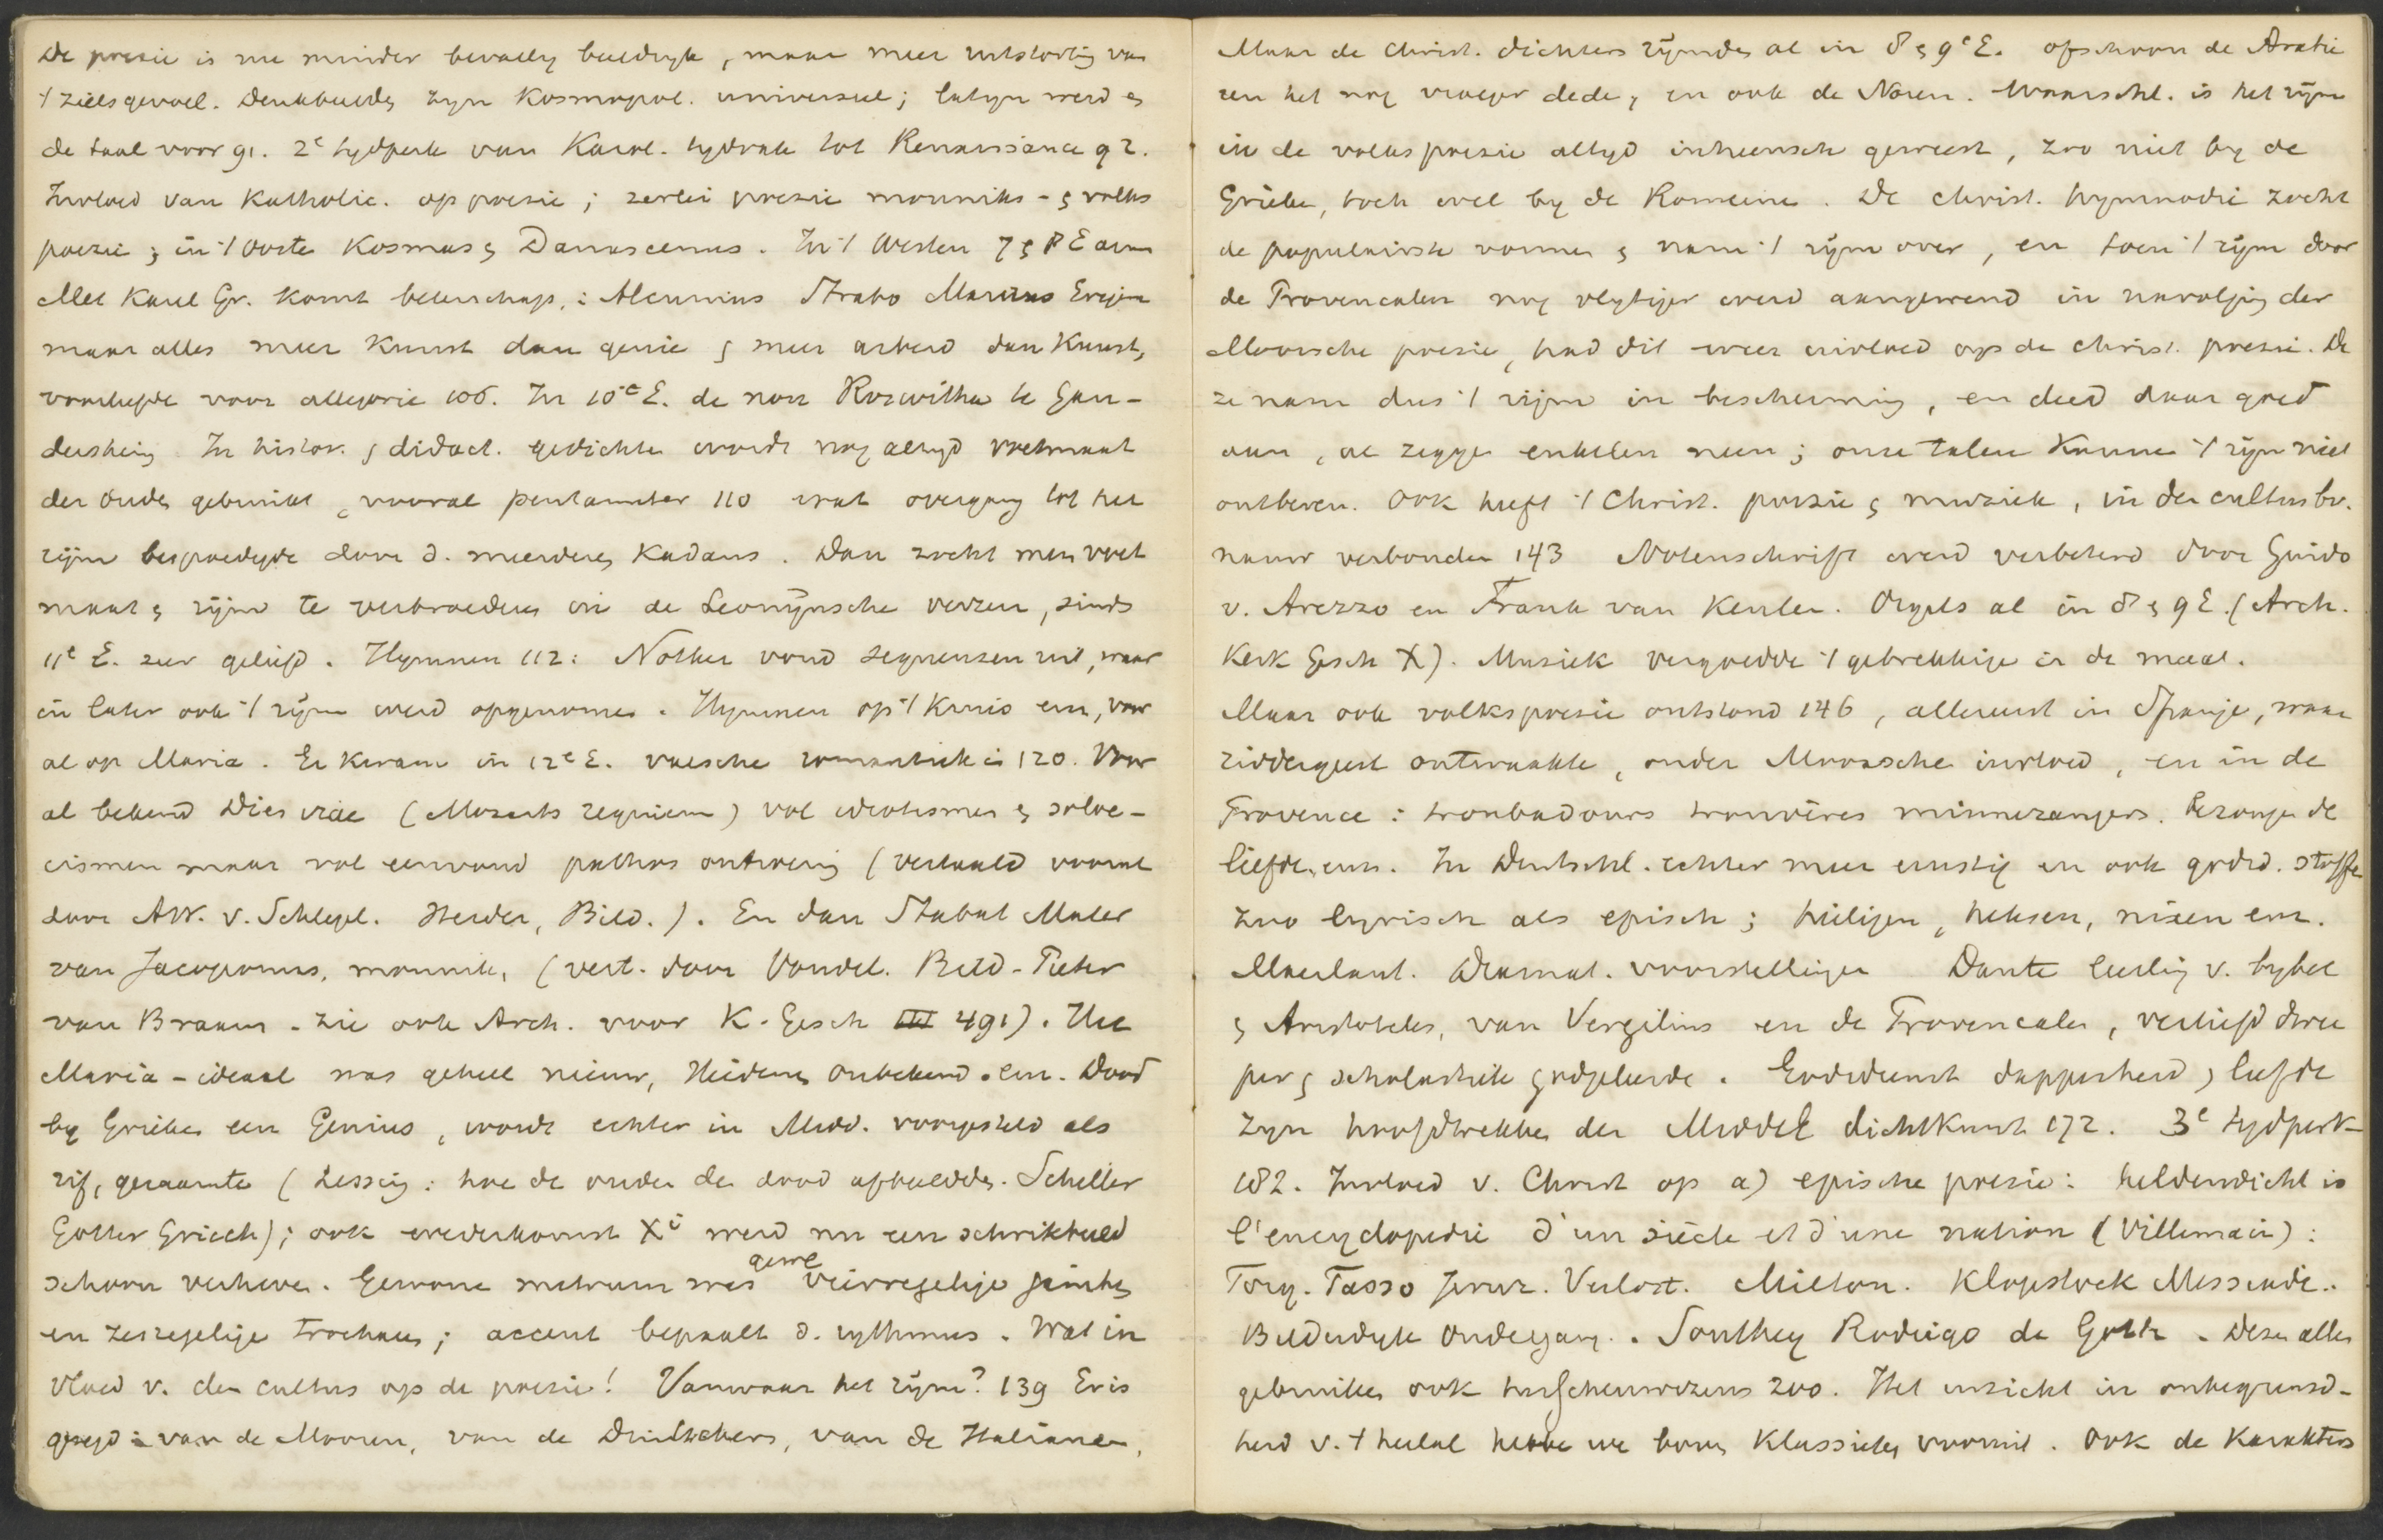 De poezie is nu minder bevallig beeldryk, maar meer uitstorting van
't zielsgevoel. Denkbeelden zyn Kosmopol. universeel; latyn werd en
de taal voor 91. 2e tydperk van Karol. tydvak tot Renaissance 92.
Invloed van Katholic. op poezie; 2erlei poezie monniks- & volks
poezie; in 't Ooste Kosmas & Damascenus. In 't Westen 7 & 8 E arm
Met Karel Gr. komt beterschap,: Alcuinus Strabo Maurus Erigena
maar alles meer Kunst dan genie & meer arbeid dan Kunst,
voorliefde voor allegorie 106. In 10e E. de non Roswitha te Gan-
dersheim In histor. & didact. gedichten wordt nog altyd voetmaat
der Ouden gebruikt, vooral pentameter 110 wat overgang tot het
rijm bespoedigde door d. meerdere Kadans. Dan zocht men voet
maat & rijm te verbroederen in de Leonijnsche verzen, sinds
11e E. zeer geliefd. Hymnen 112: Notker vond sequensen uit, waar
in later ook 't rijm werd opgenomen. Hymnen op 't Kruis enz, voor
al op Maria. Er kwam in 12e E. valsche romantiek in 120. Voor
al bekend Dies irae (Mozarts requiem) vol idiotismen & soloe-
cismen maar vol eenvoud pathos ontroering (vertaald vooral
door AW. v. Schlegel. Herder, Bild.). En dan Stabat Mater
van Jacoponus, monnik, (vert. door Vondel. Bild - Pieter
van Braam - zie ook Arch. voor K. Gesch III 491). Het
Maria-ideaal was geheel nieuw, Heidenen onbekend. enz. Dood
by Grieken een Genius, wordt echter in Midd. voorgesteld als
rif, geraamte (Lessing: hoe de ouden den dood afbeeldden. Schiller
Götter Griech); ook wederkomst Xi werd nu een schrikbeeld
schoon verheven. Gewone metrum was gew vierregelige jambe,
en zesregelige trochaeus; accent bepaalt d. rythmus. Wat in
vloed v. den cultus op de poezie! Vanwaar het rijm? 139 Er is
gezegd: van de Mooren, van de Duitschers, van de Italianen,
Maar de Christ. dichters rijmden al in 8 & 9e E. ofschoon de Arabie
ren het nog vroeger deden, en ook de Noren. Waarschl. is het rijm
in de volkspoezie altyd inheemsch geweest, zoo niet by de
Grieken, toch wel by de Romeinen. De christ. hymnodie zocht
de populairste vormen & nam 't rijm over, en toen 't rijm door
de Provencalen nog vlytiger werd aangewend in navolging der
Moorsche poezie, had dit weer invloed op de christ. poezie. De
ze nam dus 't rijm in bescherming, en deed daar goed
aan, al zeggen enkelen neen; onze talen kunnen 't rijm niet
ontberen. Ook heeft 't Christ. poezie & muziek, in den cultus bv.
nauw verbonden 143 Notenschrift werd verbeterd door Guido
v. Arezzo en Frank van Keulen. Orgels al in 8 & 9 E. (Arch.
Kerk Gesch X). Muziek vergoedde 't gebrekkige in de maat.
Maar ook volkspoezie ontstond 146, allereerst in Spanje, waar
riddergeest ontwaakte, onder Moorsche invloed, en in de
Provence: troubadours trouvères minnezangers. Bezongen de
liefde, enz. In Duitschl. echter meer ernstig en ook godsd. stoffe
zoo lyrisch als episch; heiligen, heksen, nixen enz.
Maerlant. Dramat. voorstellingen Dante leerling v. bybel
& Aristoteles, van Vergilius en de Provencalen, verliefd dwee
per & scholastiek godgeleerde. Godsdienst dapperheid & liefde
zyn hoofdtrekken der MiddelE dichtkunst 172. 3e tydperk
182. Invloed v. Christ op a) epische poezie: heldendicht is
l'encyclopedie d'un siècle et d'une nation (Villemain):
Torq. Tasso Jeruz. Verlost. Milton. Klopstock Messiade.
Bilderdyk Ondergang. Southey Roderigo de Goth. Deze allen
gebruiken ook hersenwezens 200. Het inzicht in onbegrensd-
heid v. 't heelal hebben we boven Klassieken vooruit. Ook de Karakters